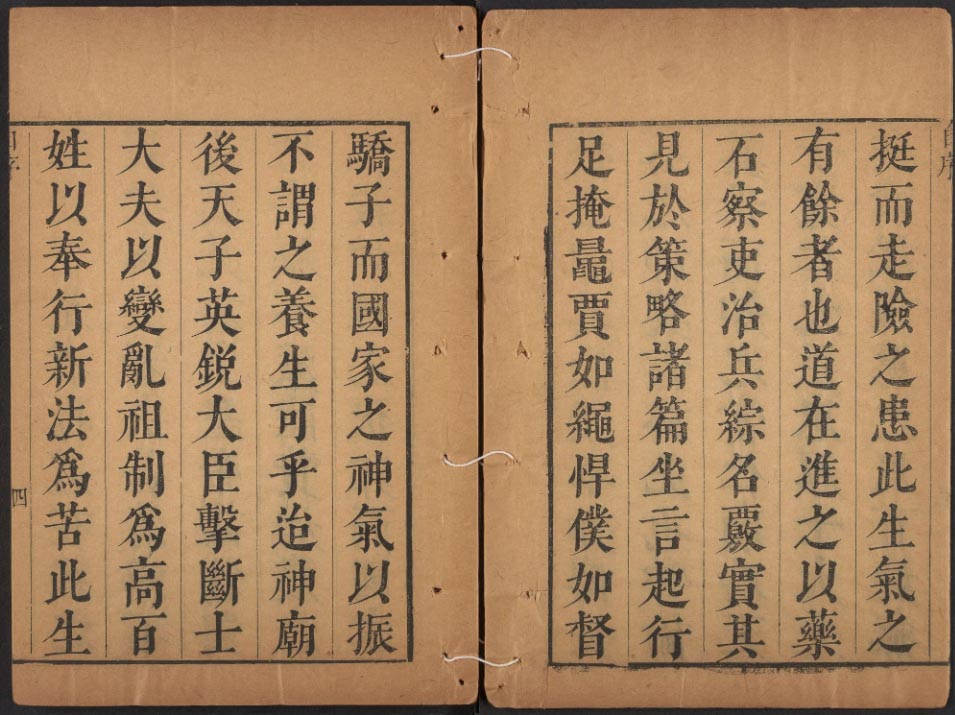 自序
挺而走險之患此生氣之
有餘者也道在進之以藥
石察吏治兵綜名覈實其
見於策略諸篇坐言起行
足掩鼂賈如繩悍僕如督
驕子而國家之神氣以振
不謂之養生可乎迨神廟
後天子英銳大臣擊斷士
大夫以變亂祖制爲高百
姓以奉行新法爲苦此生
自序
四